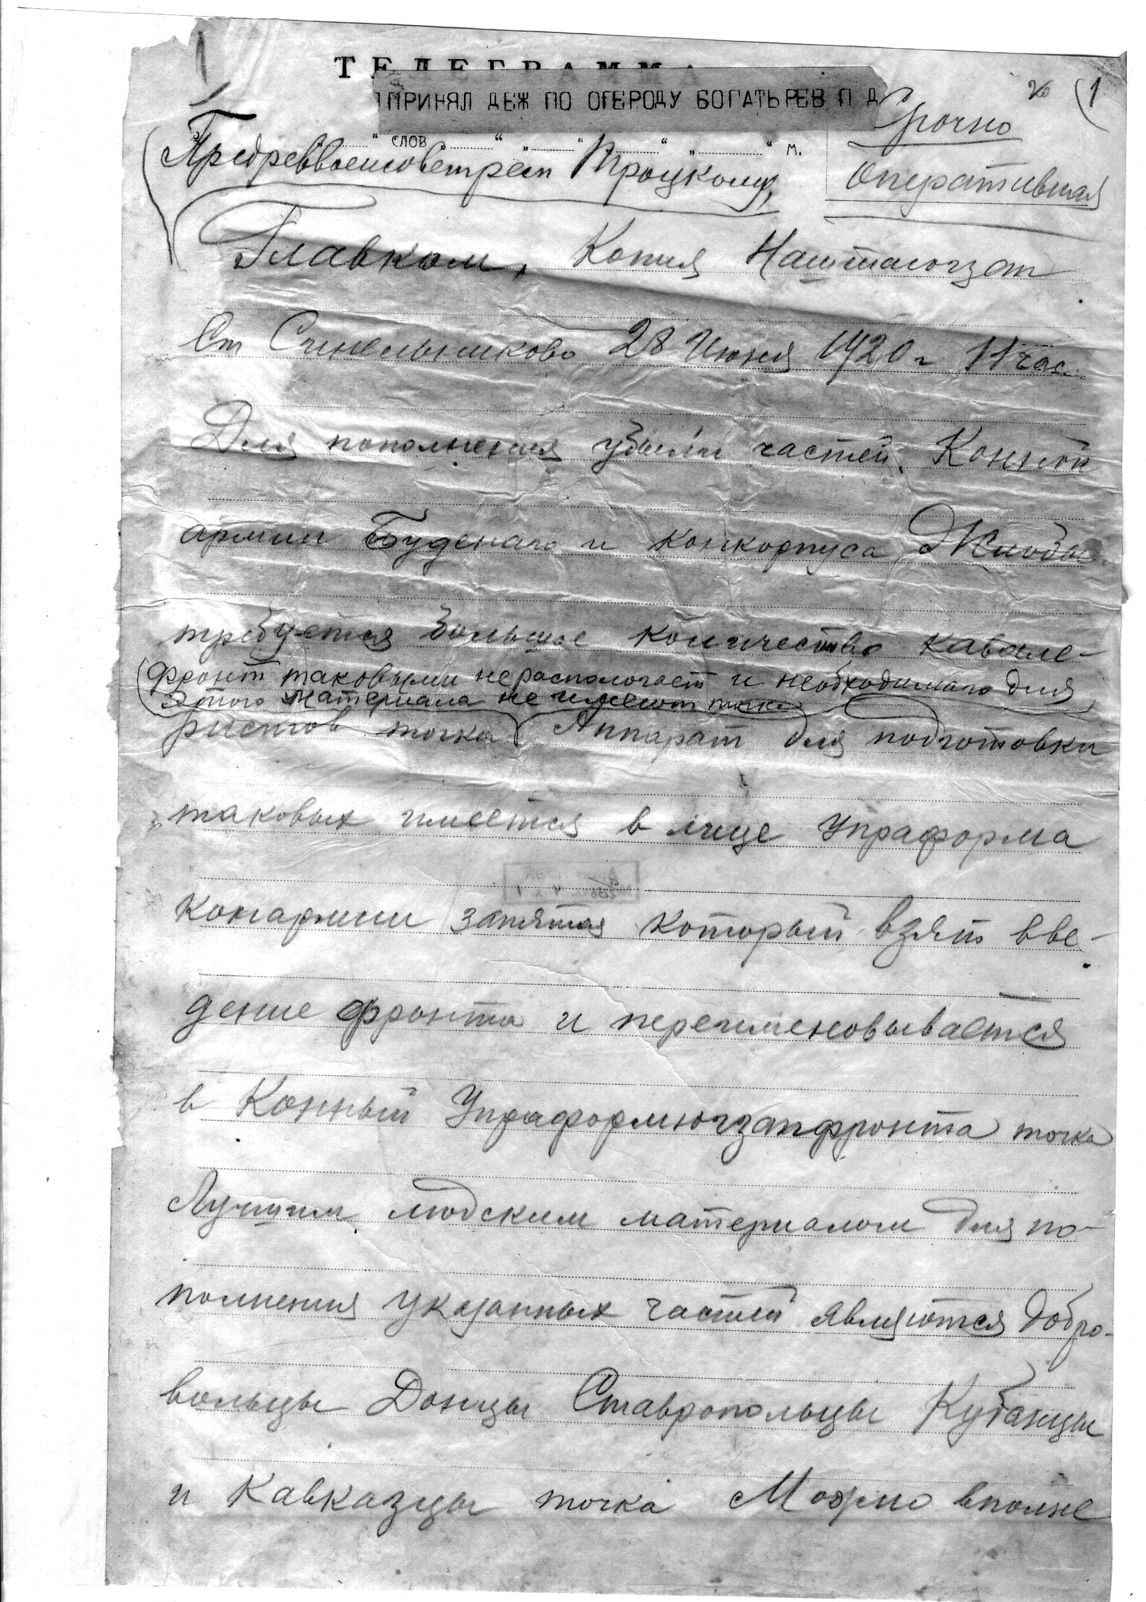 1
ТЕЛЕГРАММА
ПРИНЯЛ ДЕЖ ПО ОГЕРОДУ БОГАТЫРЕВ П Д
1
Срочно
" слов " " " " " м.
Предреввоенсоветресп Троцкому,
Оперативная
Главком, Копия Наштаюгзап
Ст Синельниково 28 Июня 1920 г 11 час.
Для пополнения убыли частей Конной
армии Буденаго и конкорпуса Жлобы
требуется большое количество кавале-
фронт таковыми не распологает и необходимаго для
этого материала не имеет точка
ристов точка Аппарат для подготовки
таковых имеется в лице Упраформа
конармии запятая который взят вве-
дение фронта и переименовывается
в Конный Упраформюгзапфронта точка
Лучшим людским материалом для по-
полнения указанных частей являются добро-
вольцы Донцы Ставропольцы Кубанцы
и Кавказцы точка Можно вполне